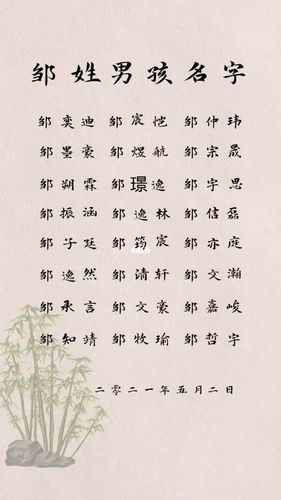 邹姓男孩名字
邹奕迪 邹宸恺 邹仲玮
邹墨豪 邹煜航 邹宗晟
邹朔霖 邹璟逸 邹宇思
邹振涵 邹逸林 邹信磊
邹子廷 邹筠宸 邹亦庭
邹逸然 邹清轩 邹文瀚
邹承言 邹文豪 邹嘉峻
邹知靖 邹牧瑜 邹哲宇
二零二一年五月二日